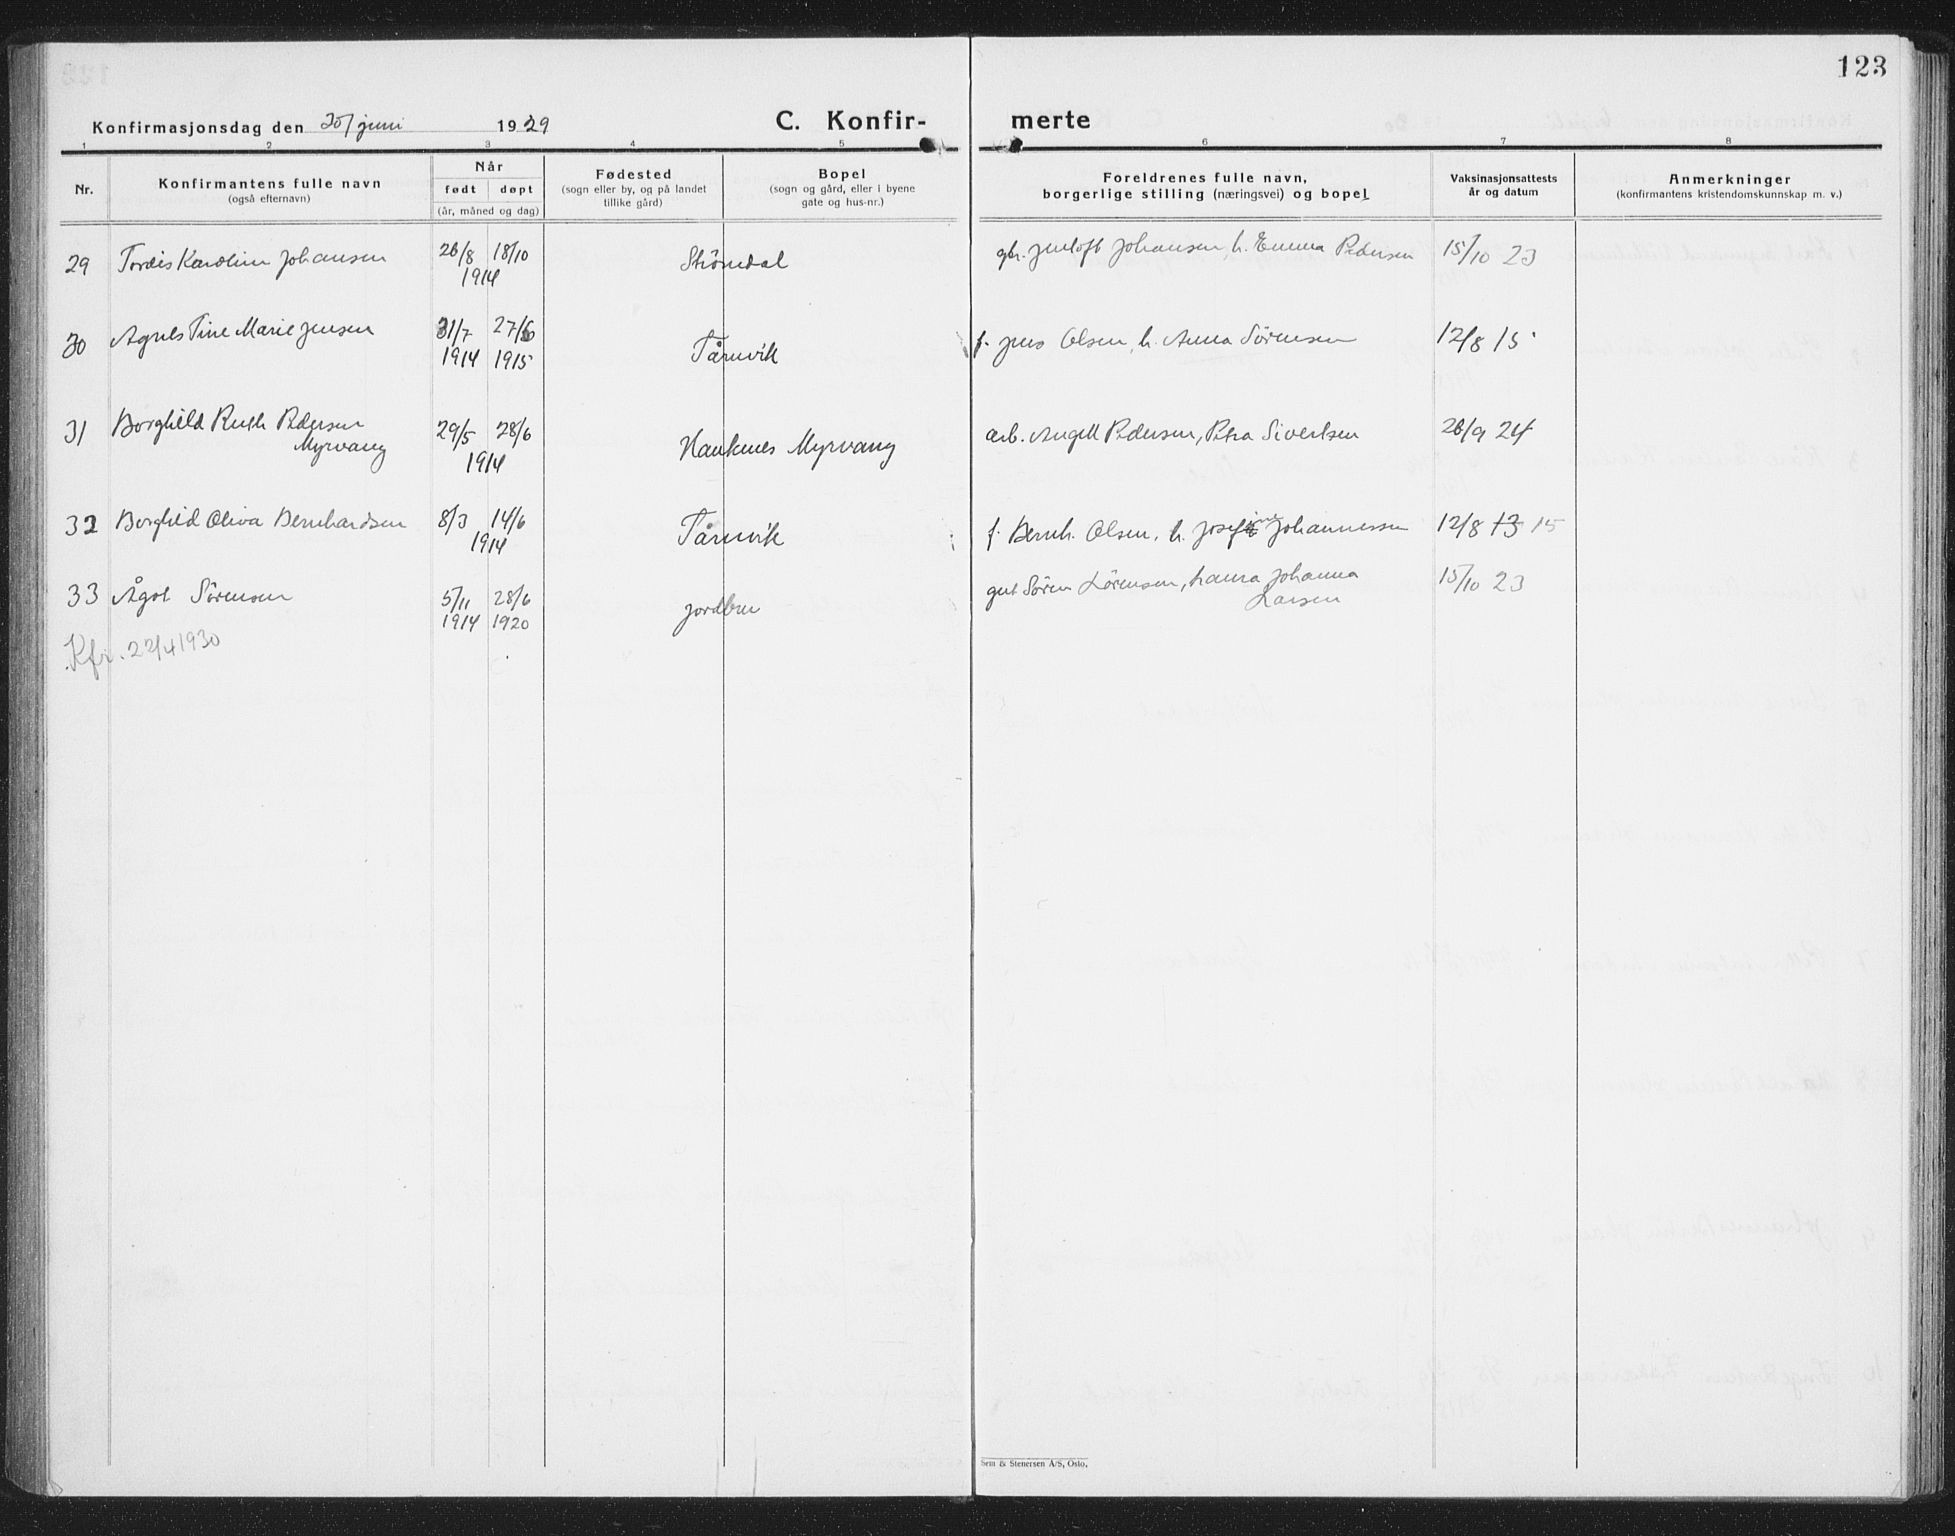 123
Konfirmasjonsdag den 30/ juni 1929 C. Konfir- merte
1 2 3 4 5 6 7 8
Nr.
Konfirmantens fulle navn
(også efternavn)
Når
født døpt
(år, måned og dag)
Fødested
(sogn eller by, og på landet
tillike gård)
Bopel
(sogn og gård, eller i byene
gate og hus-nr.)
Foreldrenes fulle navn,
borgerlige stilling (næringsvei) og bopel
Vaksinasjonsattests
år og datum
Anmerkninger
(konfirmantens kristendomskunnskap m. v.)
29 Tordis Karoline Johansen 26/8 18/10 1914 Strømdal gbr. Jentoft Johansen, h. Emma Pedersen 15/10 23
30 Agnes Tine Marie Jensen 31/7 1914 27/6 1915 Tårnvik f. Jens Olsen, h. Anna Sørensen 12/8 15
31 Borghild Ruth Pedersen
Myrvang 29/5 28/6 1914 Hauknes Myrvang arb. Angell Pedersen, Petra Sivertsen 26/9 24
32 Borghild Oliva Bernhardsen 8/3 14/6 1914 Tårnvik f. Bernh. Olsen, h. Josefine Johannessen 12/8 13 15
33 Ågot Sørensen 5/11 1914 28/6 1920 Jordbru Søren Sørensen, Laura Johanna
Larsen 15/10 23
Kfr. 22/4 1930
Sem & Stenersen A/S, Oslo.